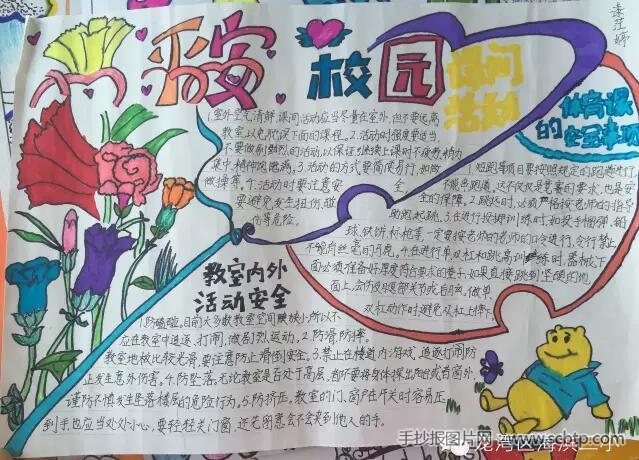 平安校园
课间
活动
1.室外空气清鲜,课间活动应当尽量在室外,但不要远离
教室,以免耽误下面的课程。2.活动时强度要适当,
不要做剧烈的活动,以保证继续上课时不疲劳,精力
集中,精神饱满。3.活动的方式要简便易行,如做
做操等。4.活动时要注意安全,
要避免发生扭伤,碰
伤等危险。
体育课
的安全事项
1.短跑等项目要按照规定的跑道进行,
不能串跑道,这不仅仅是竞赛的要求,也是安
全的保障。2.跳远时,必须严格按老师的指导
助跑起跳。3.在进行投掷训练时,如投手榴弹、铅
球、铁饼、标枪等,一定要按老师的口令进行,令行禁止,
不能有丝毫的马虎。4.在进行单双杠和跳高训练时,器械下
面必须准备好厚度符合要求的垫子,如果直接跳到坚硬的地
面上,会伤及腿部关节或后脑。做单
双杠动作时避免双杠上摔下。
教室内外
活动安全
1.防磕碰。目前大多数教室空间狭小,所以不
应在教室中追逐、打闹,做剧烈运动。2.防滑、防摔。
教室地板比较光滑,要注意防止滑倒安全。3.禁止在楼道内游戏,追逐打闹防
止发生意外伤害。4.防坠落。无论教室是否处于高层,都不要将身体探出阳台或者窗外,
谨防不慎发生坠落楼层的危险行为。5.防挤压。教室的门、窗户在开关时容易压
到手,也应当处处小心,要轻轻关门窗,还先留意会不会夹到他人的手。
手抄报图片大全网
www.scbtp.com
龙湾区海滨二小